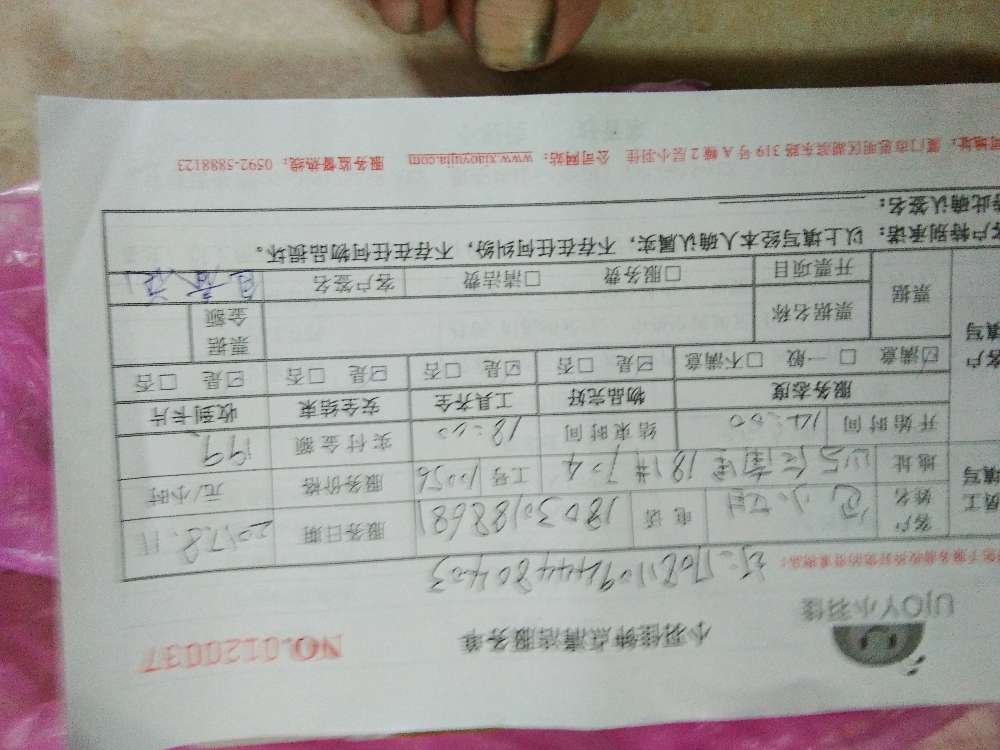 UJOY小羽佳
小羽佳钟点清洁服务单
NO.0120037
1708110944480403
客户姓名 电话 18030188681 服务日期 2017.8.11
地址 181# 704 工号 10056 服务价格 元/小时
开始时间 14:00 结束时间 18:00 实付金额 199
服务态度 物品完好 工具齐全 安全结束 收到卡片
☑满意 □一般 □不满意 ☑是 □否 ☑是 □否 ☑是 □否 ☑是 □否
员工填写
客户填写
票据 票据名称 票据金额
开票项目 □服务费 □清洁费 客户签名
客户特别承诺：以上填写经本人确认属实，不存在任何纠纷，不存在任何物品损坏。
特此确认签名：
司地址：厦门市思明区湖滨东路 319 号 A 幢 2 层小羽佳 公司网站：www.xiaoyujia.com 服务监督热线：0592-5888123